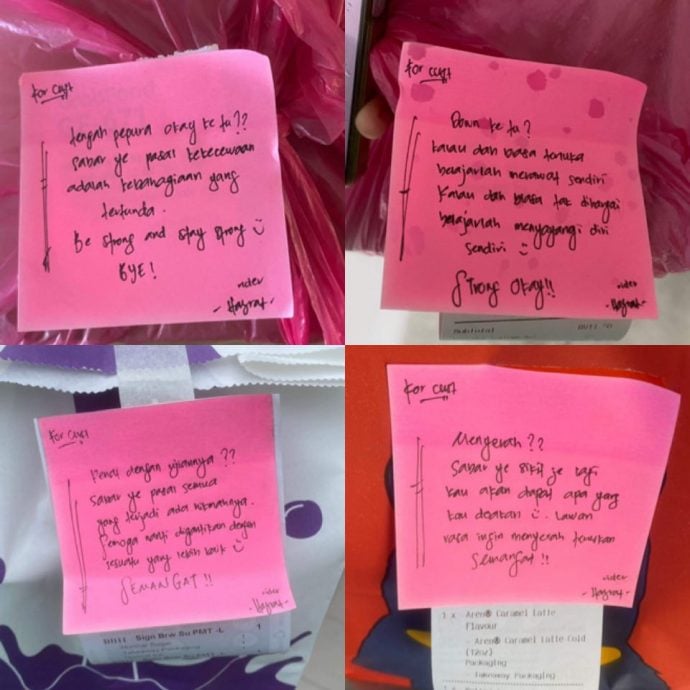 For cust
tengah pepura okay ke tu??
sabar ye pasal kekecewaan
adalah kebahagiaan yang
tertunda.
Be strong and stay strong
BYE!
rider
- Hayrat -
For cust
Down ke tu?
kalau dah biasa terluka
belajarlah merawat sendiri
Kalau dah biasa tak dihargai
belajarlah menyayangi diri
sendiri
Strong Okay!!
rider
- Hayrat -
Subtotal
For cust
Penat dengan ujiannya ??
sabar ye pasal semua
yang terjadi ada hikmahnya.
Semoga nanti digantikan dengan
sesuatu yang lebih baik
SEMANGAT !!
rider
- Hayrat -
Sign Brw Su PMT -L 1
Normal Sugar
Takeaway Packaging
For cust
Menyerah ??
Sabar ye sikit je lagi
kau akan dapat apa yang
kau doakan . Lawan
rasa ingin menyerah
Semangat !!
rider
- Hayrat -
1 x Aren® Caramel Latte
Flavour
- Aren® Caramel Latte Cold
(12oz)
Packaging
- Takeaway Packaging